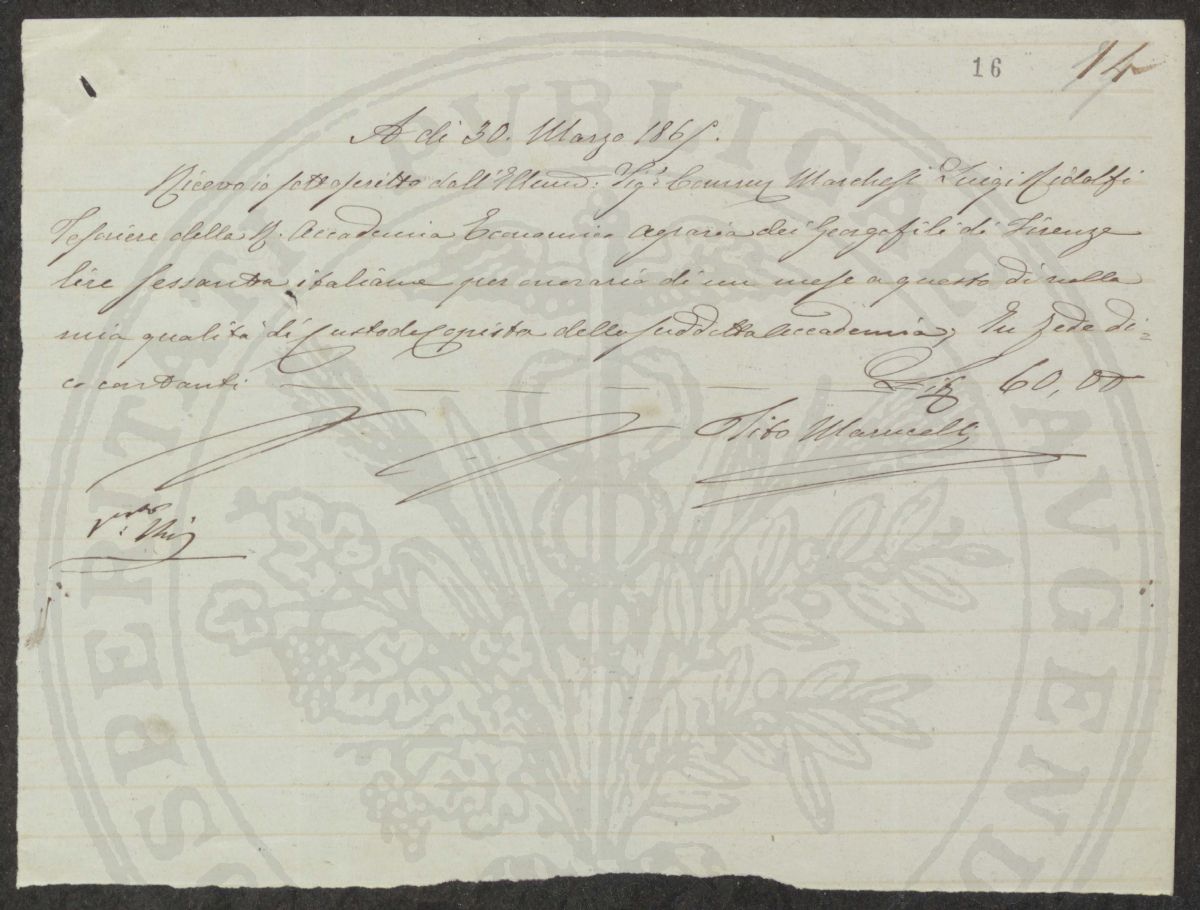 16 14
A di 30. Marzo 1865.
Ricevo io sottoscritto dall'Illmo: Sig.r Marchese Luigi Ridolfi
Tesoriere della R. Accademia Economico agraria dei Georgofili di Firenze
lire sessanta italiane per onorario di un mese a questo dì nella
mia qualità di Custode Copista della suddetta Accademia, In fede di=
co contanti — — — — — 60,00
Tito Marucelli
visto
PROSPERITATI PUBLICAE AUGENDAE